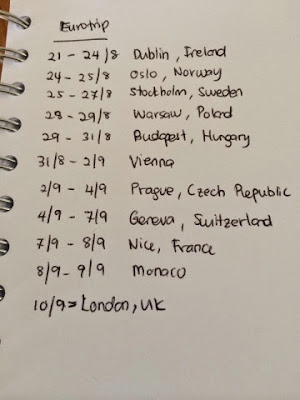 Eurotrip
21 - 24/8 Dublin, Ireland
24 - 25/8 Oslo, Norway
25 - 27/8 Stockholm, Sweden
28 - 29/8 Warsaw, Poland
29 - 31/8 Budapest, Hungary
31/8 - 2/9 Vienna
2/9 - 4/9 Prague, Czech Republic
4/9 - 7/9 Geneva, Switzerland
7/9 - 8/9 Nice, France
8/9 - 9/9 Monaco
10/9 = London, UK